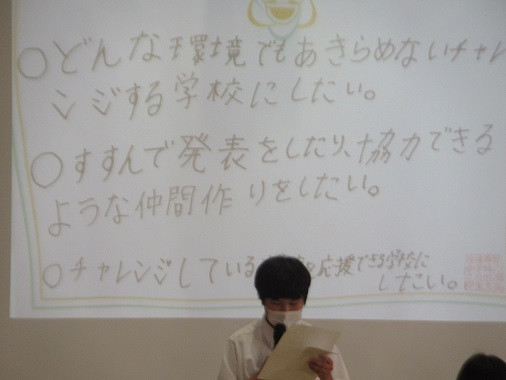 ○どんな環境でもあきらめないチャレ
ンジする学校にしたい。
○すすんで発表をしたり、協力できる
ような仲間作りをしたい。
○チャレンジしている を応援できる学校に
したい。